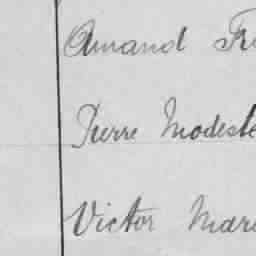 Amand Fr
Pierre Modeste
Victor Mari